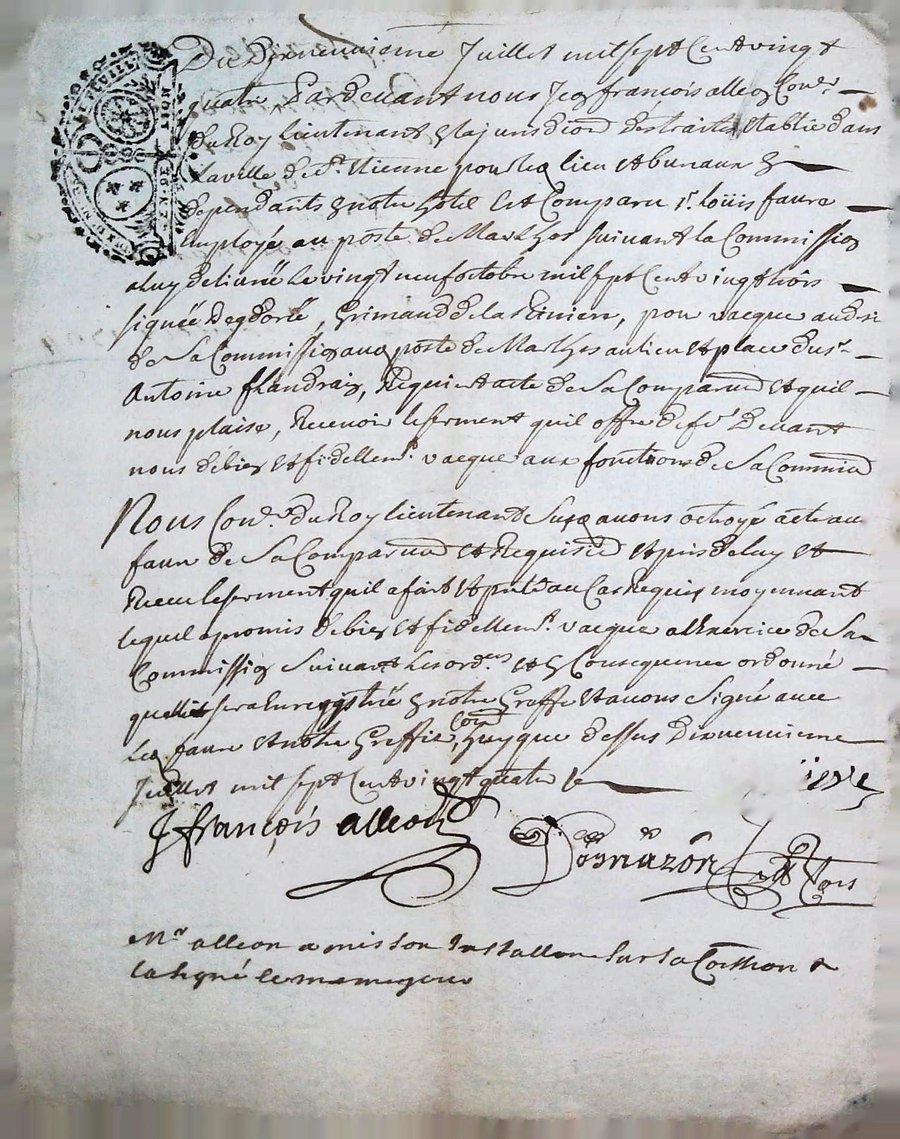 Du Dixneuvieme Juillet mil sept Cent vingt
quatre Pardevant nous Jean françois alleon Con.er
du Roy lieutenant en la jurisdion des traites establie dans
la ville de S.t Etienne pour led lieu et bureaux en
dependants en notre hotel Est Comparu s.r loüis faure
Employé au poste de Marlhes suivant la Commission
a luy delivrée le vingt neuf octobre mil sept Cent vingt trois
signée pour vacquer aud
de sa Commission aud poste de Marlhes au lieu et place du s.r
Antoine flandrain, Requiert acte de sa Comparu᷉on et quil
nous plaise, Recevoir le serment quil offre de Devant
nous de bien et fidellem.t vacquer aux fonctions de sa Commi᷉on
Nous Con.er du Roy lieutenant susd avons octroyé acte aud
faure de sa Comparu᷉on et Requisi᷉on et pris de luy et
Receu le serment quil a fait et preté au Cas Requis moyennant
lequel a promis de bien et fidellem.t vacquer a lexercice de sa
Commission suivant les ord.es et en Consequence ordonné
quelle sera Enregistrée en notre Greffe et avons Signé avec
led faure et notre Greffier Com
Juillet mil sept Cent vingt quatre
J françois alleon
M.r alleon a mis son Install sur la Co᷉mission et
la signé le meme jour